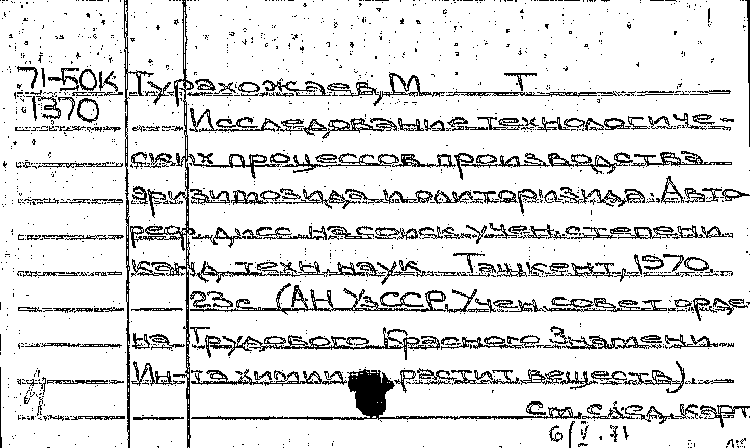 71-50К Турахожаев, М Т
1370
Исследование технологиче-
ских процессов производства
эризимозида и олиторизида. Авто
реф. дисс. на соиск учен. степени
канд. техн. наук Ташкент, 1970.
23с (АН УзССР. Учен. совет орде
на Трудового Красного Знамени
Ин-та химии растит. веществ).
См. след. карт
6/V.71